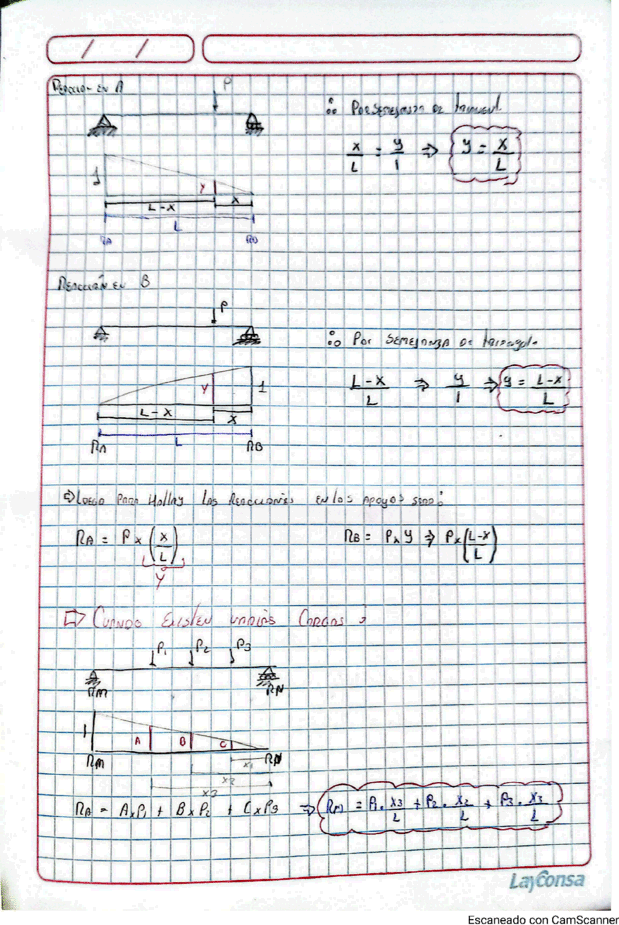 REACCION EN A
P
∴ POR SEMEJANZA DE TRIANGUL.
x/L = y/1 ⇒ y = x/L
1
y
L-x
x
L
RA RB
REACCIÓN EN B
P
∴ POR SEMEJANZA DE triangul.
y
1
L-x/L ⇒ y/1 ⇒ y = L-x/L
L-x
x
L
RA RB
⇒ LUEGO PARA Hallar LAS REACCIONES EN LOS APOYOS SERÁ:
RA = P x (x/L)
y
RB = P x y ⇒ P x (L-x/L)
⇒ CUANDO EXISTEN VARIAS CARGAS :
P1 P2 P3
RM RN
1
A B C
RM RN
x1
x2
x3
RA = A x P1 + B x P2 + C x P3 ⇒ RM = P1 . x3/L + P2 . x2/L + P3 . x3/L
LayConsa
Escaneado con CamScanner